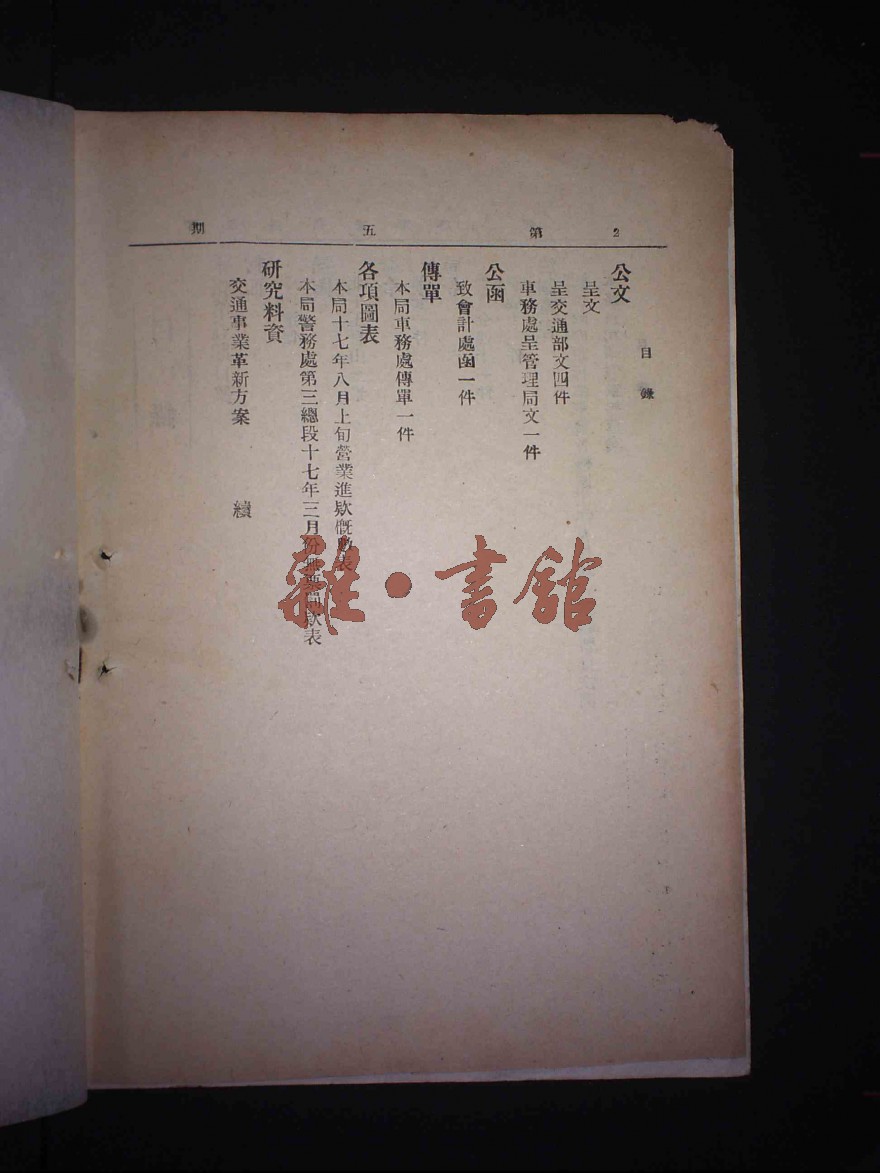 2 第五期
目錄
公文
呈文
呈交通部文四件
車務處呈管理局文一件
公函
致會計處函一件
傳單
本局車務處傳單一件
各項圖表
本局十七年八月上旬營業進欵概數表
本局警務處第三總段十七年三月份欵表
研究料資
交通事業革新方案 續
雜·書館